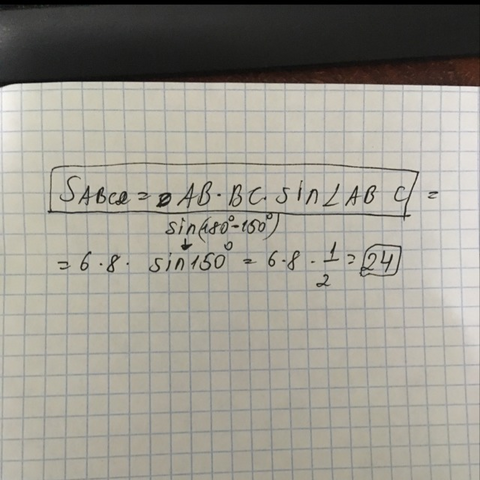 S ABCD = AB · BC · sin∠ABC =
sin(180°-150°)
= 6·8· sin150° = 6·8 · 1/2 = 24